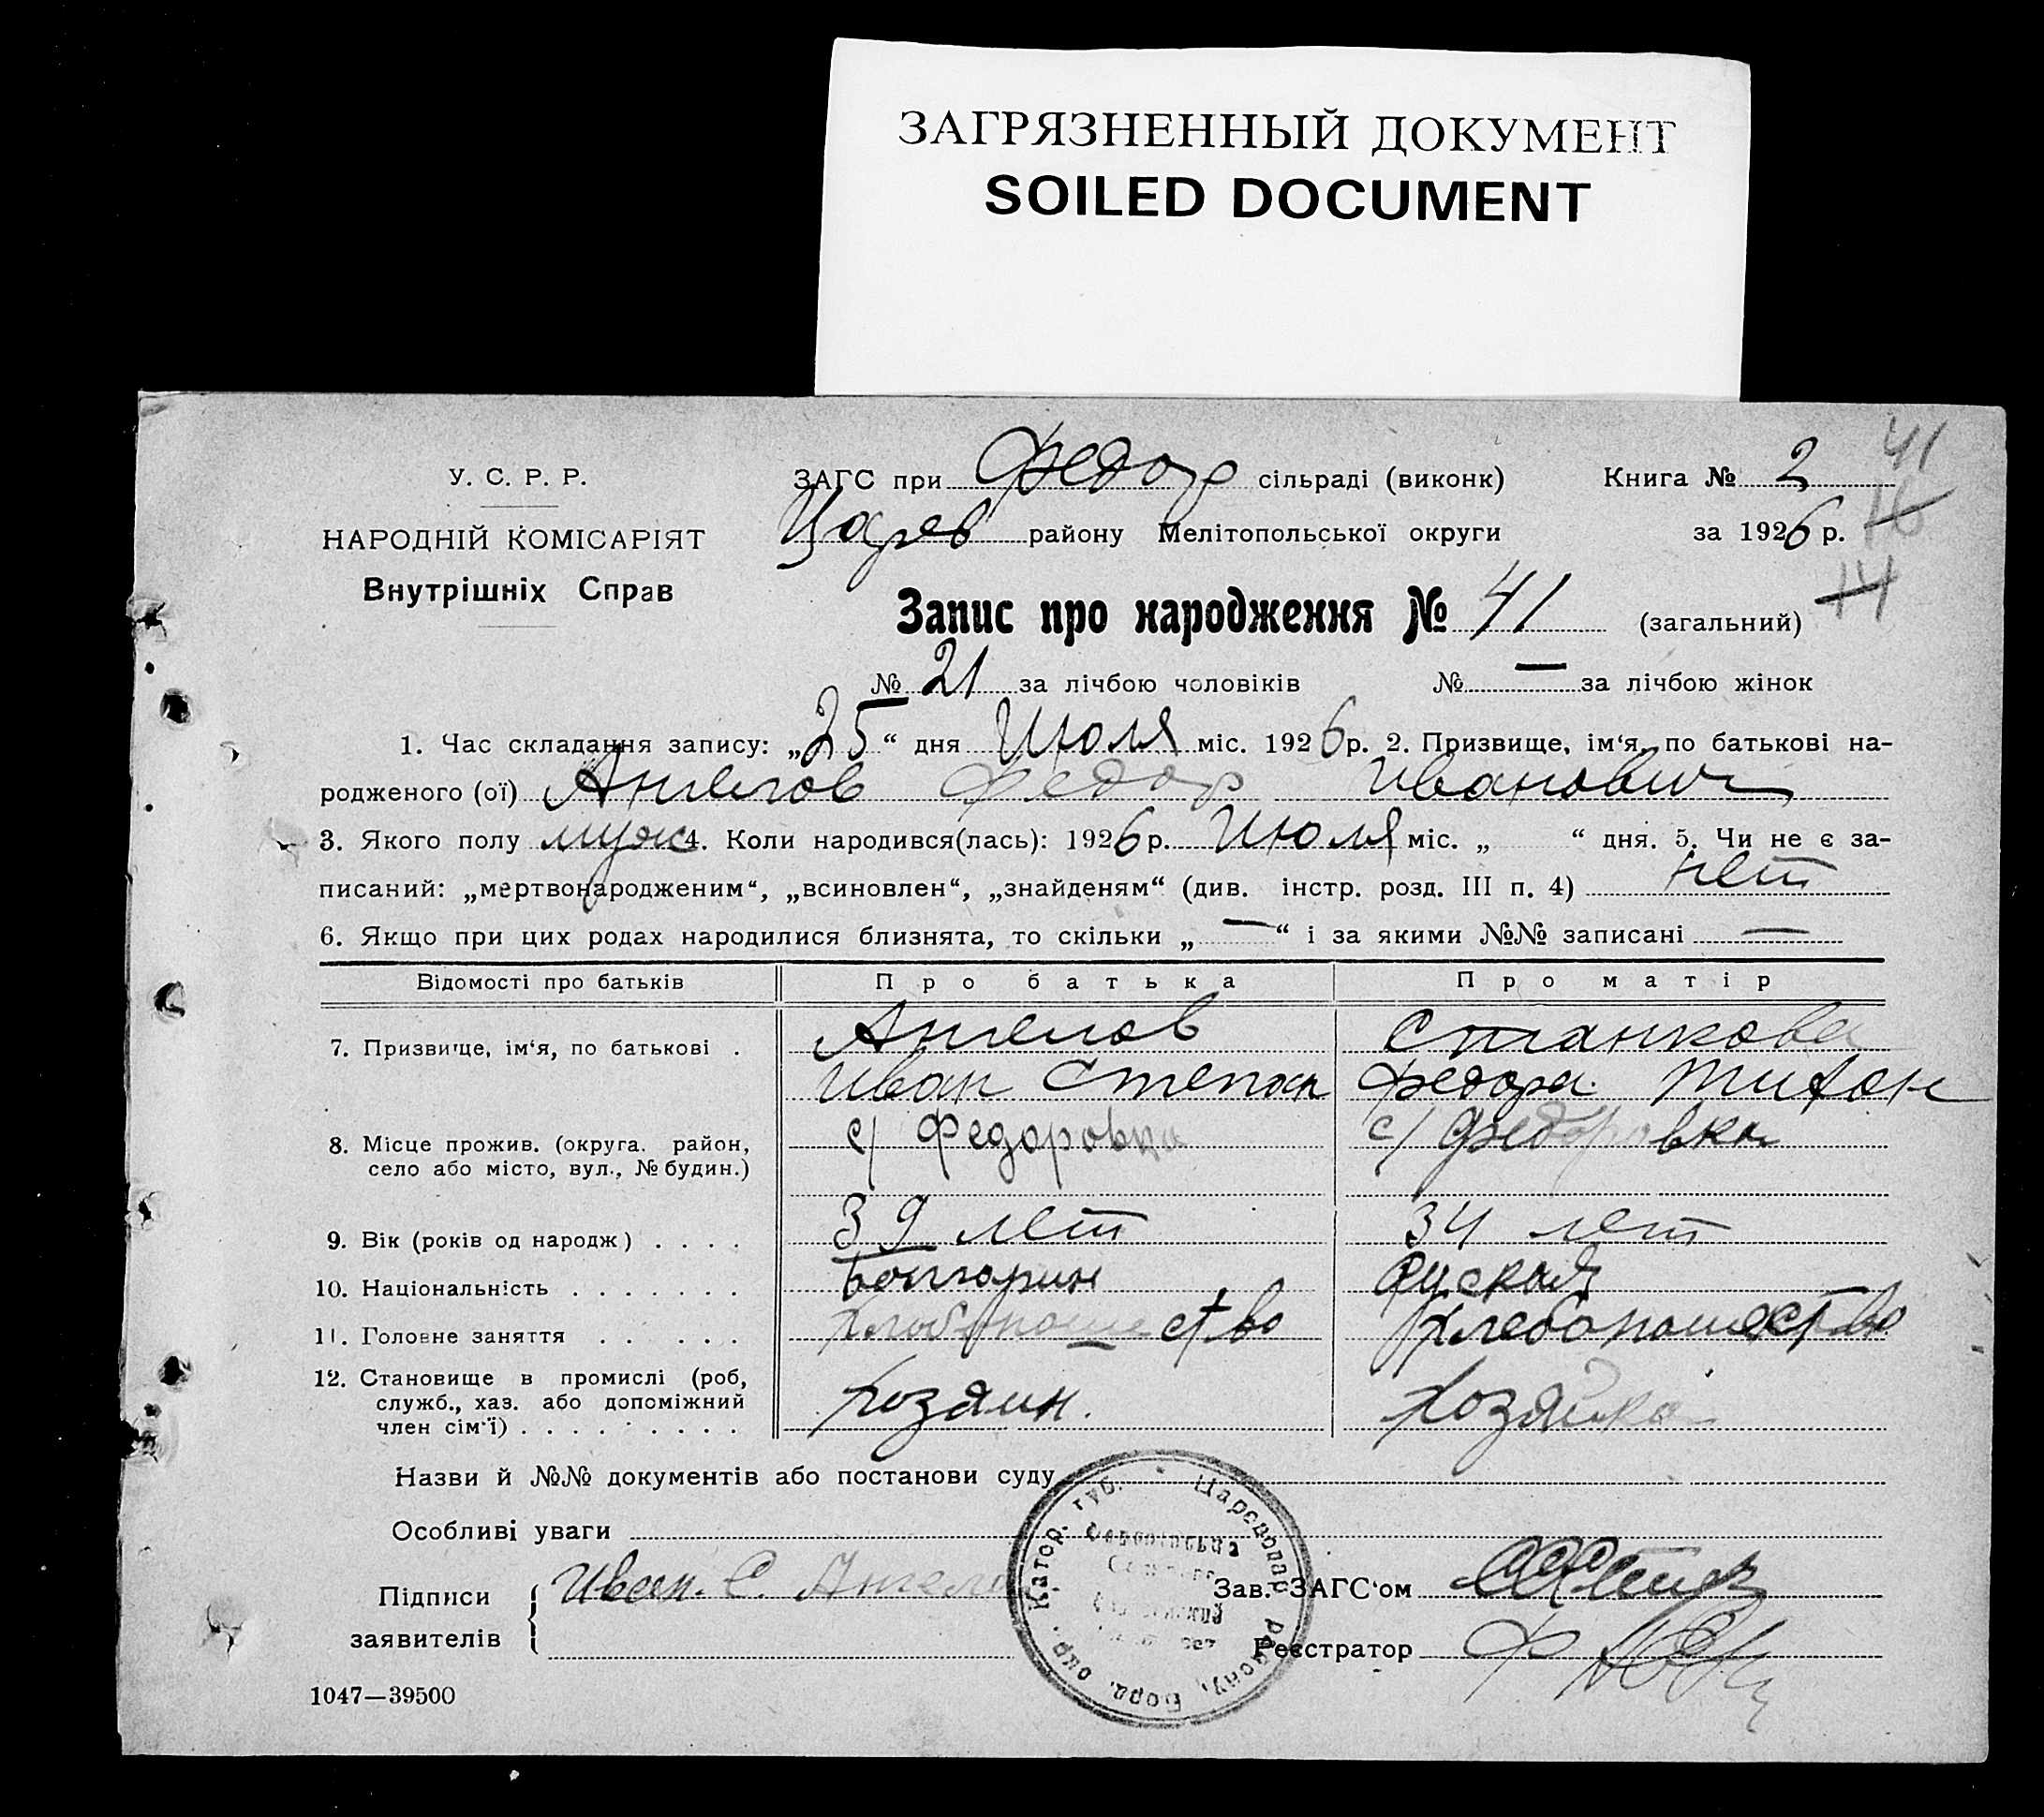 ЗАГРЯЗНЕННЫЙ ДОКУМЕНТ
SOILED DOCUMENT
41
У. С. Р. Р.
ЗАГС при Федор сільраді (виконк) Книга № 2
16
НАРОДНІЙ КОМІСАРІЯТ
Царев району Мелітопольської округи за 1926 р.
Внутрішніх Справ
14
Запис про народження № 41 (загальний)
№ 21 за лічбою чоловіків № — за лічбою жінок
1. Час складання запису: „25“ дня Июля міс. 1926 р. 2. Призвище, ім‘я, по батькові на-
родженого (ої) Ангелов Федор Иванович
3. Якого полу муж 4. Коли народився(лась): 1926 р. Июля міс. „ “ дня. 5. Чи не є за-
писаний: „мертвонародженим“, „всиновлен“, „знайденям“ (див. інстр. розд. III п. 4) нет
6. Якщо при цих родах народилися близнята, то скільки „—“ і за якими №№ записані —
Відомості про батьків Про батька Про матір
7. Призвище, ім‘я, по батькові . Ангелов Станкова
Иван Степан Федора Тихон
8. Місце прожив. (округа. район, с/ Федоровка с/ Федоровка
село або місто, вул., № будин.)
9. Вік (років од народж) . . . . 39 лет 34 лет
10. Національність . . . . . . . Болгарин Руская
11. Головне заняття . . . . . Хлебопашество Хлебопашество
12. Становище в промислі (роб, Хозяин. Хозяйка
служб., хаз. або допоміжний
член сім‘ї) . . . . . . . .
Назви й №№ документів або постанови суду
Особливі уваги
Підписи
заявителів
Иван. С. Ангело
Зав. ЗАГС‘ом
Реєстратор
Катор. губ. Царевода району, Берд. окр.
1047—39500